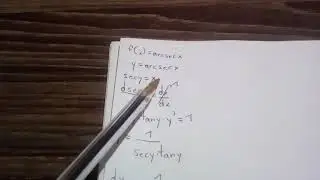 f(x)=arcsecx
y=arcsecx
secy=x
dsec dx
dx
tany·y'=1
= 1
secy·tany
dy 1